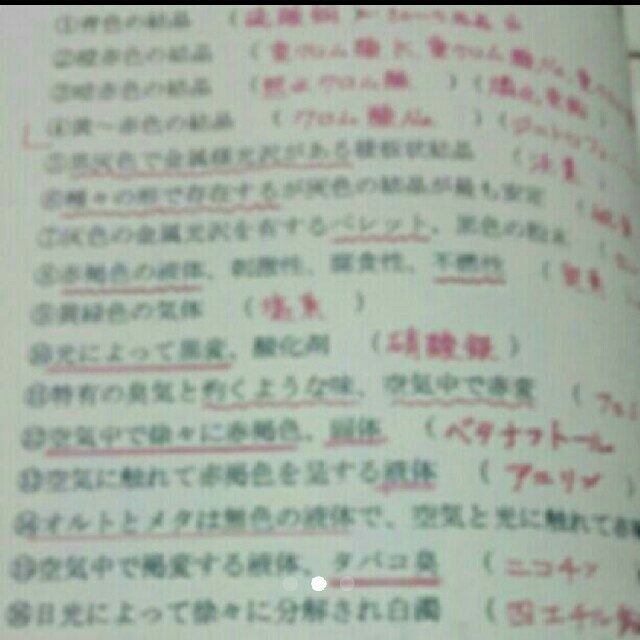 ①青色の結晶 (硫酸銅
②暗赤色の結晶 (重クロム酸K、重クロム酸
③暗赤色の結晶 (無水クロム酸 ) (塩化
④黄〜赤色の結晶 (クロム酸 ) (
⑤黒灰色で金属様光沢がある 結晶 (沃素 )
⑥種々の形で存在するが灰色の結晶が最も安定 (
⑦灰色の金属光沢を有するペレット、黒色の粉末 (
⑧赤褐色の液体、刺激性、腐食性、不燃性 (臭素
⑨黄緑色の気体 (塩素 )
⑩光によって黒変、酸化剤 (硝酸銀)
⑪特有の臭気と灼くような味、空気中で赤変 (フェ
⑫空気中で徐々に赤褐色、固体 (ベタナフトール
⑬空気に触れて赤褐色を呈する液体 (アニリン )
⑭オルトとメタは無色の液体で、空気と光に触れて赤
⑮空気中で褐変する液体、タバコ臭 (ニコチン
⑯日光によって徐々に分解され白濁 (四エチル